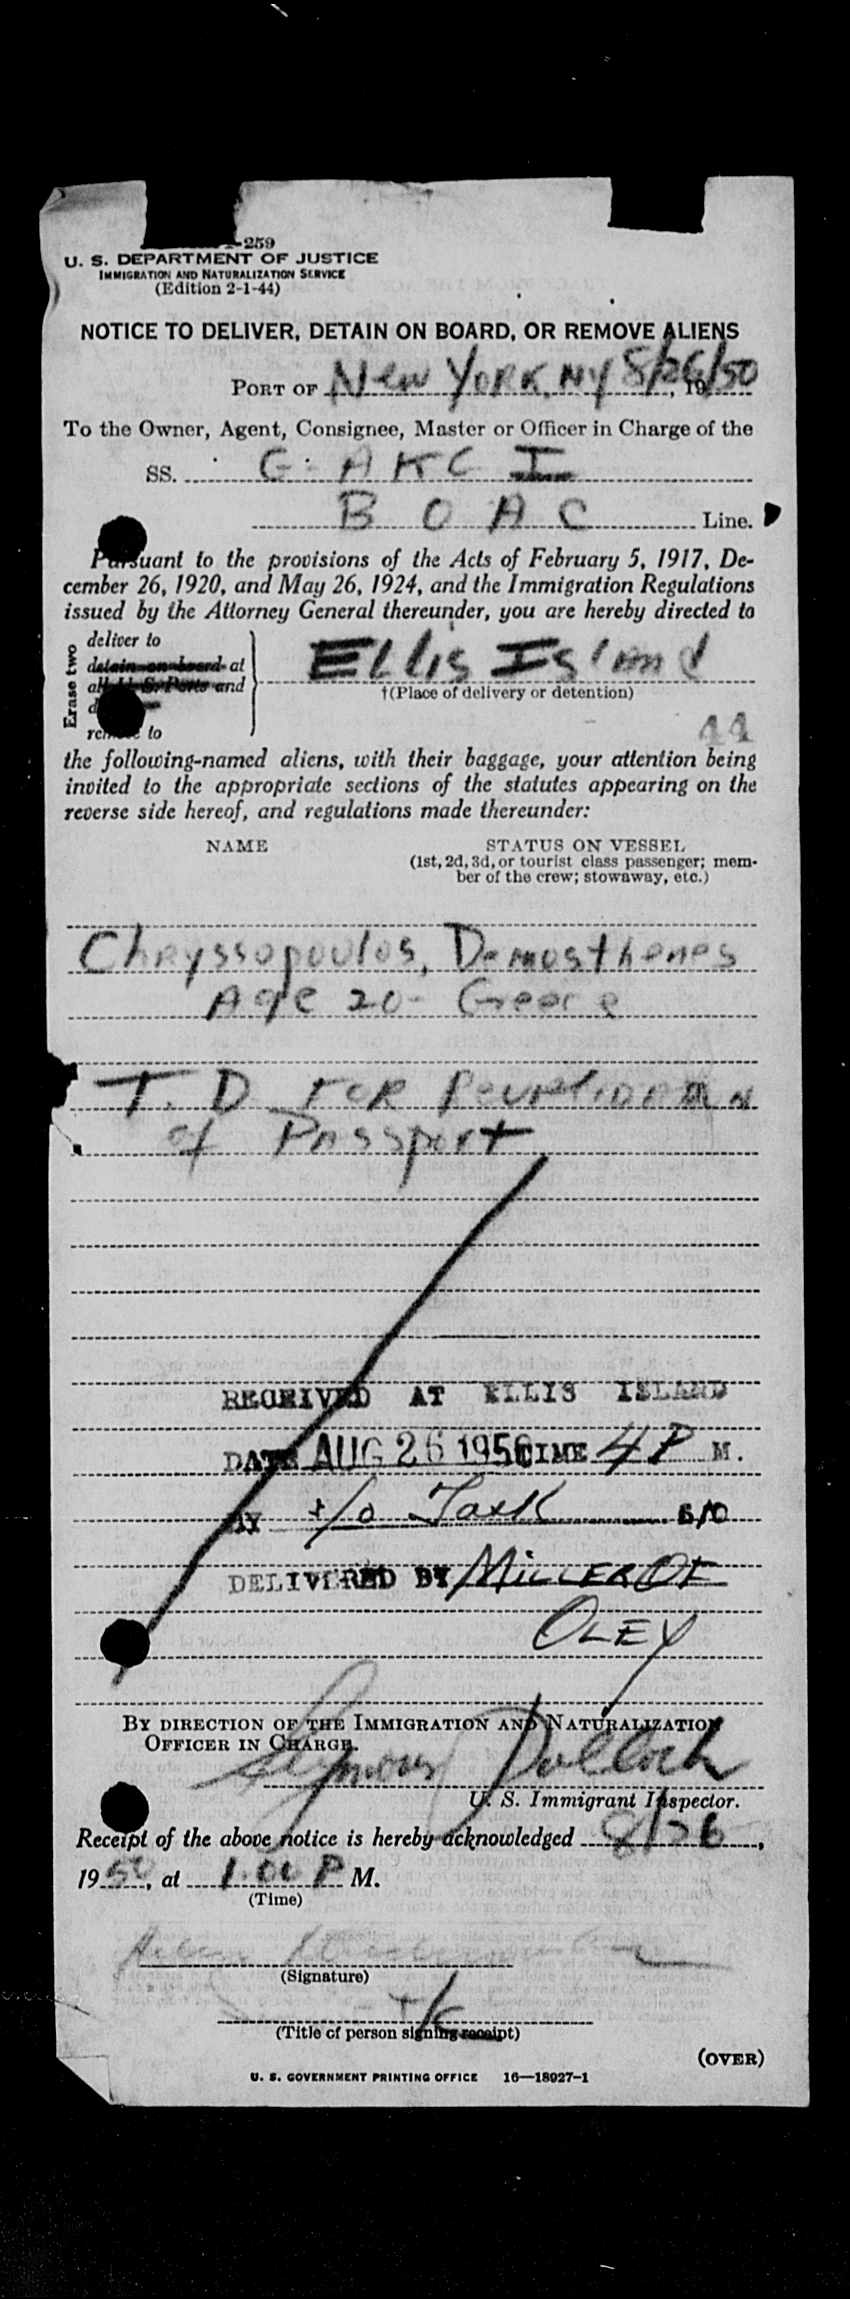 -259
U. S. DEPARTMENT OF JUSTICE
IMMIGRATION AND NATURALIZATION SERVICE
(Edition 2-1-44)
NOTICE TO DELIVER, DETAIN ON BOARD, OR REMOVE ALIENS
PORT OF New York, NY 8/26/50, 19
To the Owner, Agent, Consignee, Master or Officer in Charge of the
SS. G-AKC I
B O A C Line.
Pursuant to the provisions of the Acts of February 5, 1917, De-
cember 26, 1920, and May 26, 1924, and the Immigration Regulations
issued by the Attorney General thereunder, you are hereby directed to
Erase two
deliver to
detain on board at
all U. S. Ports and
remove to
Ellis Island
†(Place of delivery or detention)
44
the following-named aliens, with their baggage, your attention being
invited to the appropriate sections of the statutes appearing on the
reverse side hereof, and regulations made thereunder:
NAME STATUS ON VESSEL
(1st, 2d, 3d, or tourist class passenger; mem-
ber of the crew; stowaway, etc.)
Chryssopoulos, Demosthenes
Age 20- Greece
T. D. for
of Passport
RECEIVED AT ELLIS ISLAND
DATE AUG 26 1950 TIME 4 P M.
BY T/O S/O
DELIVERED BY MILLER OF
OLEY
BY DIRECTION OF THE IMMIGRATION AND NATURALIZATION
OFFICER IN CHARGE.
Seymour Pollock
U. S. Immigrant Inspector.
Receipt of the above notice is hereby acknowledged 8/26,
1950, at 1.00 P M.
(Time)
(Signature)
(Title of person signing receipt)
(OVER)
U. S. GOVERNMENT PRINTING OFFICE 16—18027-1